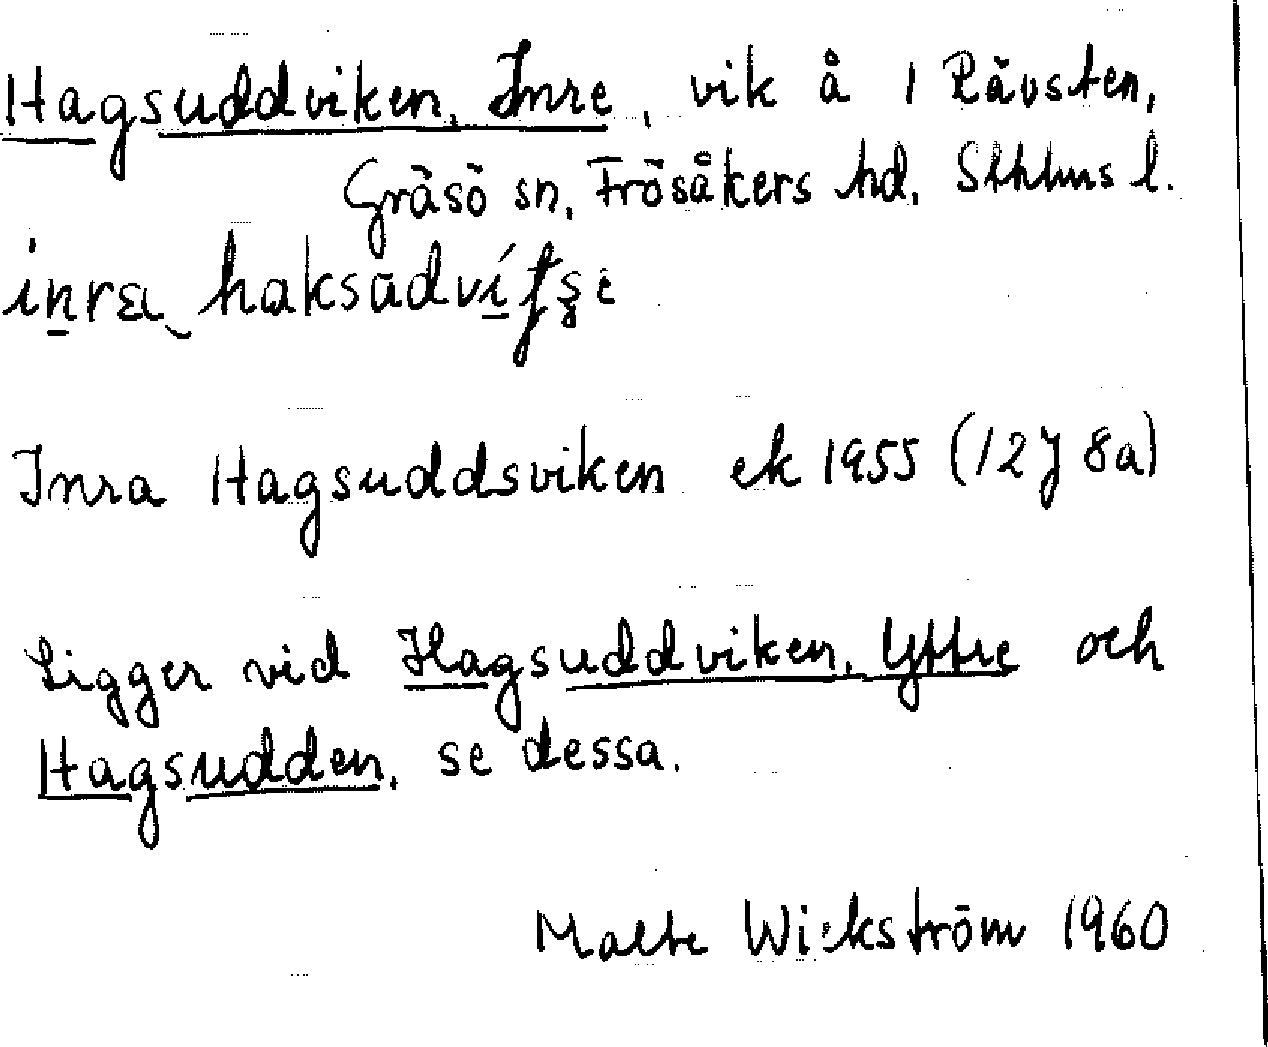 Hagsuddviken, Inre, vik å 1 Rävsten,
Gräsö sn, Frösåkers hd, Sthlms l.
Inra Hagsuddsviken ek 1955 (12J 8a)
Ligger vid Hagsuddviken, Yttre och
Hagsudden, se dessa.
Malte Wickström 1960